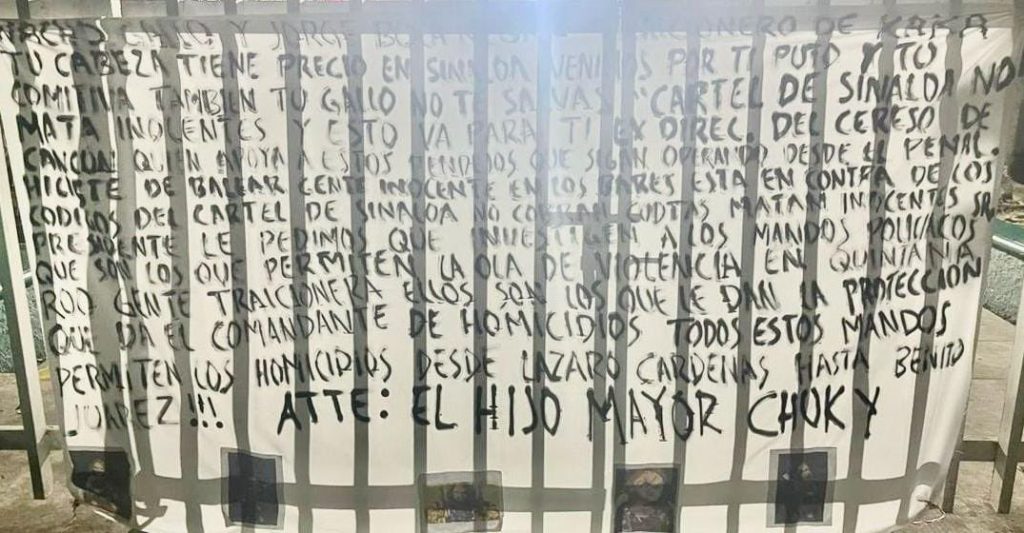 Y JORGE DE KAKA
TU CABEZA TIENE PRECIO EN SINALOA VENIMOS POR TI PUTO Y TU
COMITIVA TAMBIEN TU GALLO NO TE SALVAS "CARTEL DE SINALOA NO"
MATA INOCENTES Y ESTO VA PARA TI EX DIREC. DEL CERESO DE
CANCUN QUIEN APOYA A ESTOS PENDEJOS QUE SIGAN OPERANDO DESDE EL PENAL.
HICISTE DE BALEAR GENTE INOCENTE EN LOS BARES ESTA EN CONTRA DE LOS
CODIGOS DEL CARTEL DE SINALOA NO COBRAN CUOTAS MATAN INOCENTES SR.
PRESIDENTE LE PEDIMOS QUE INVESTIGEN A LOS MANDOS POLICIACOS
QUE SON LOS QUE PERMITEN LA OLA DE VIOLENCIA EN QUINTANA
ROO GENTE TRAICIONERA ELLOS SON LOS QUE LE DAN LA PROTECCION
QUE DA EL COMANDANTE DE HOMICIDIOS TODOS ESTOS MANDOS
PERMITEN LOS HOMICIDIOS DESDE LAZARO CARDENAS HASTA BENITO
JUAREZ!!! ATTE: EL HIJO MAYOR CHUKY